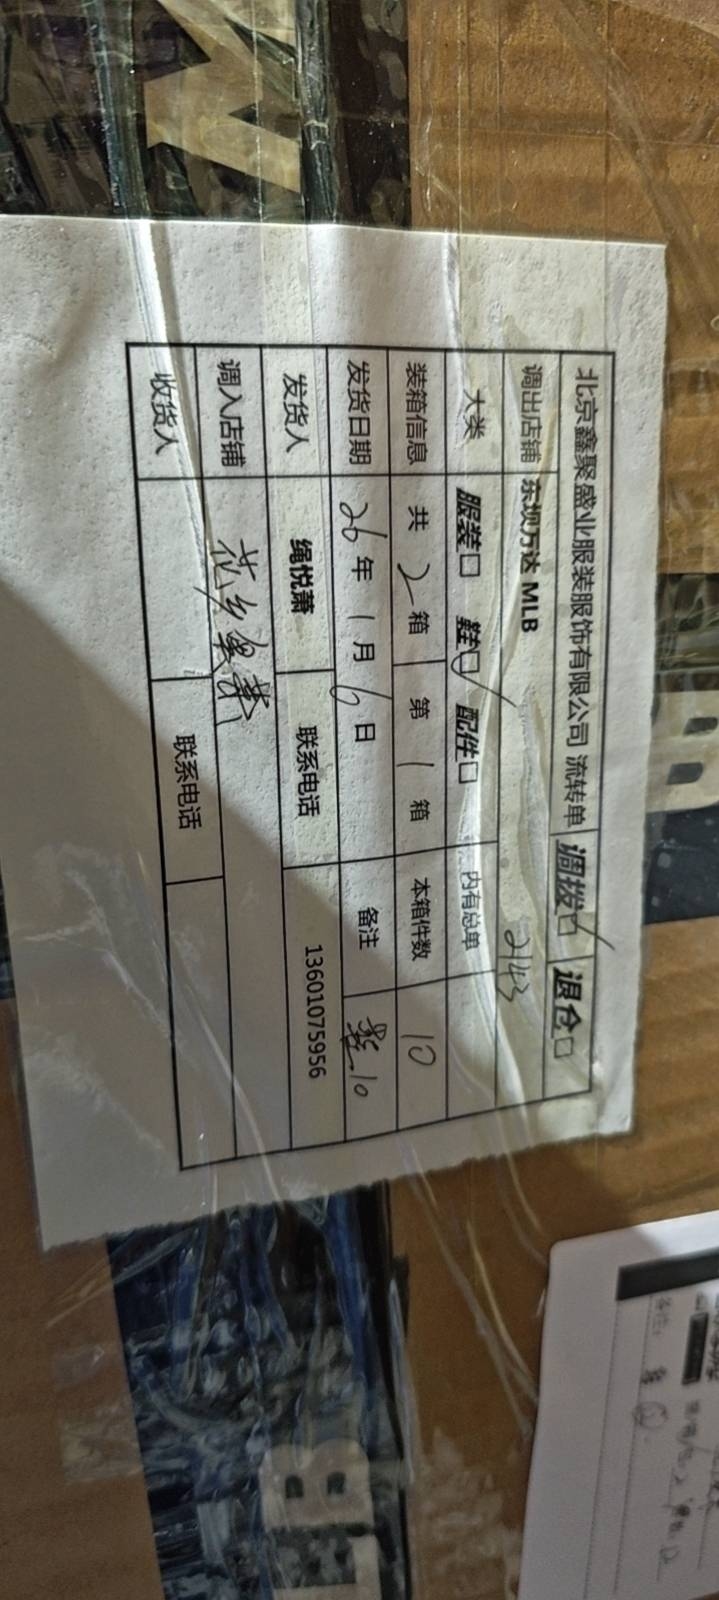 北京鑫聚盛业服装服饰有限公司 流转单 调拨☑ 退仓□
调出店铺 东坝万达 MLB 2143
大类 服装□ 鞋☑ 配件□ 内有总单
装箱信息 共 2 箱 第 1 箱 本箱件数 10
发货日期 26 年 1 月 6 日 备注 10
发货人 绳悦萧 联系电话 13601075956
调入店铺 花乡奥莱
收货人 联系电话